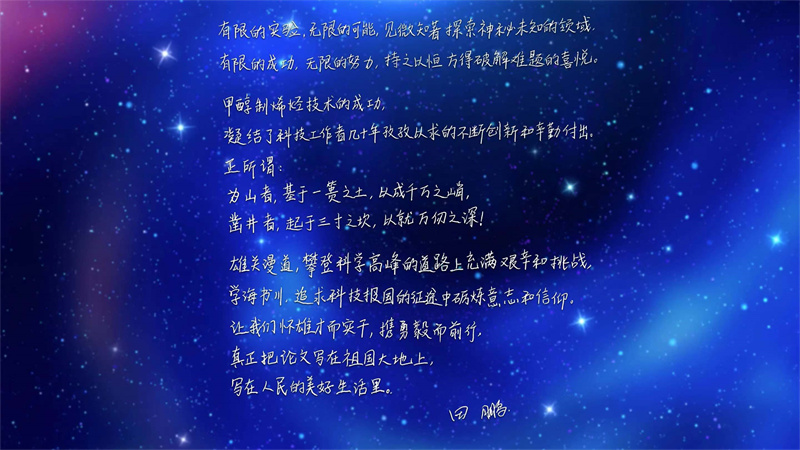 有限的实验,无限的可能,见微知著 探索神秘未知的领域.
有限的成功,无限的努力,持之以恒 方得破解难题的喜悦。
甲醇制烯烃技术的成功,
凝结了科技工作者几十年孜孜以求的不断创新和辛勤付出。
正所谓:
为山者,基于一篑之土,以成千万之峭,
凿井者,起于三寸之坎,以就万仞之深!
雄关漫道,攀登科学高峰的道路上充满艰辛和挑战,
学海书川,追求科技报国的征途中砺炼意志和信仰。
让我们怀雄才而实干,携勇毅而前行,
真正把论文写在祖国大地上,
写在人民的美好生活里。
田 鹏